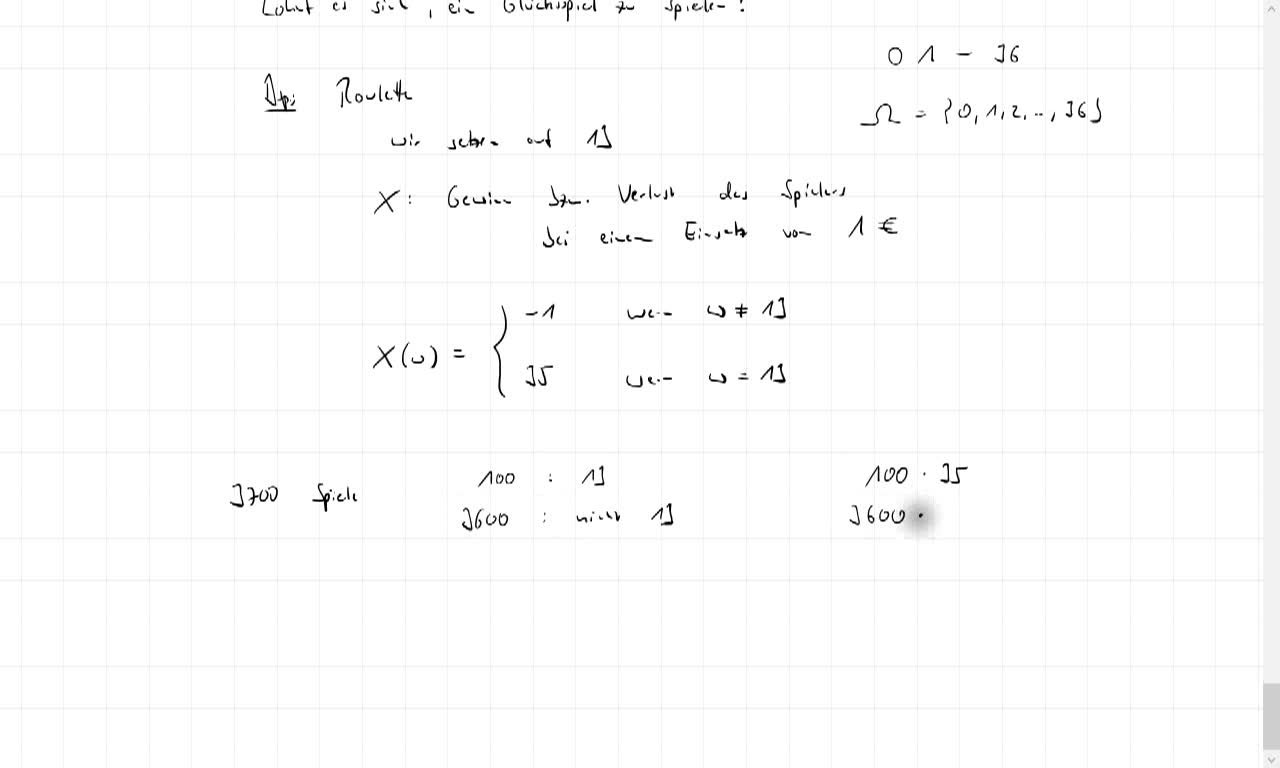 Lohnt es sich, ein Glücksspiel zu spielen?
0 1 - 36
Bsp: Roulette
Ω = {0, 1, 2, .., 36}
wir setzen auf 13
X: Gewinn bzw. Verlust des Spielers
bei einem Einsatz von 1 €
-1 wenn ω ≠ 13
X(ω) = {
35 wenn ω = 13
100 : 13 100 · 35
3700 Spiele
3600 : nicht 13 3600 ·